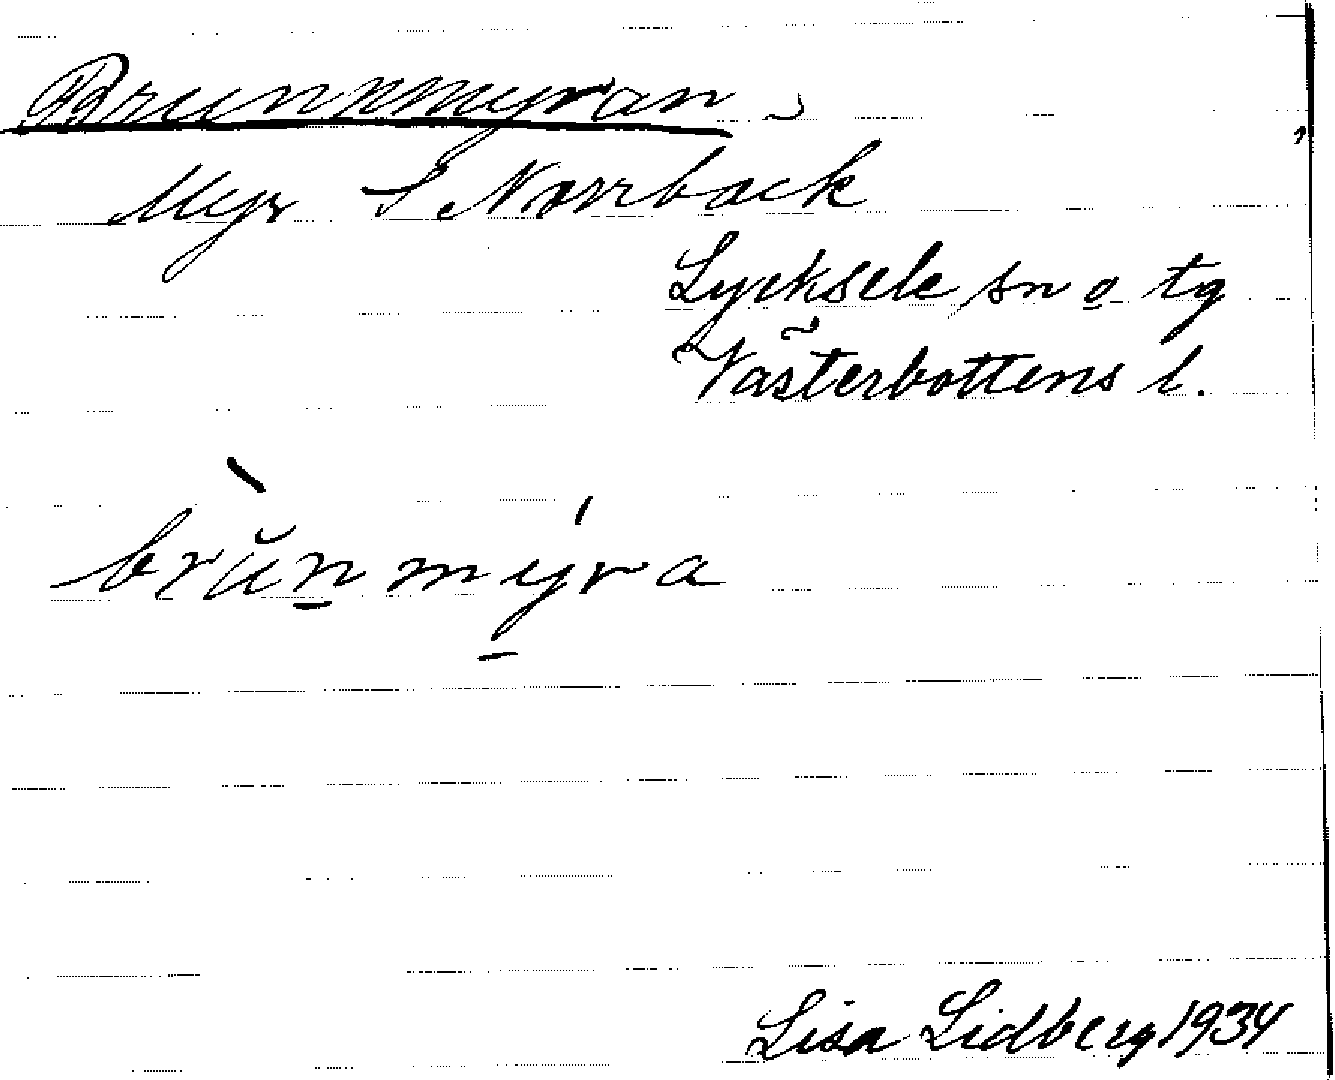 Brunnmyran
Myr S Norrback
Lycksele sn o tg
Västerbottens l.
brŭnmyra
Lisa Lidberg 1934